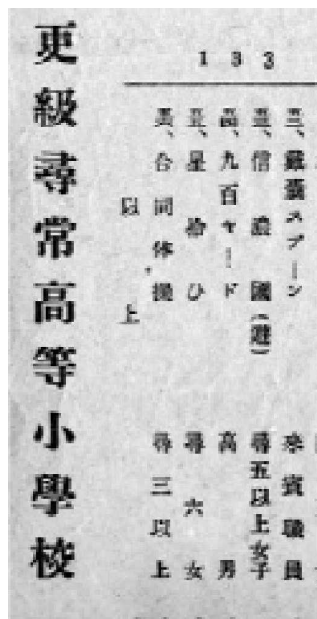 133
スプーン 來賓職員
信濃國(遊) 尋五以上女子
九百ヤード 高男
星拾ひ 尋六女
合同体操 尋三以上
以上
更級尋常高等小學校